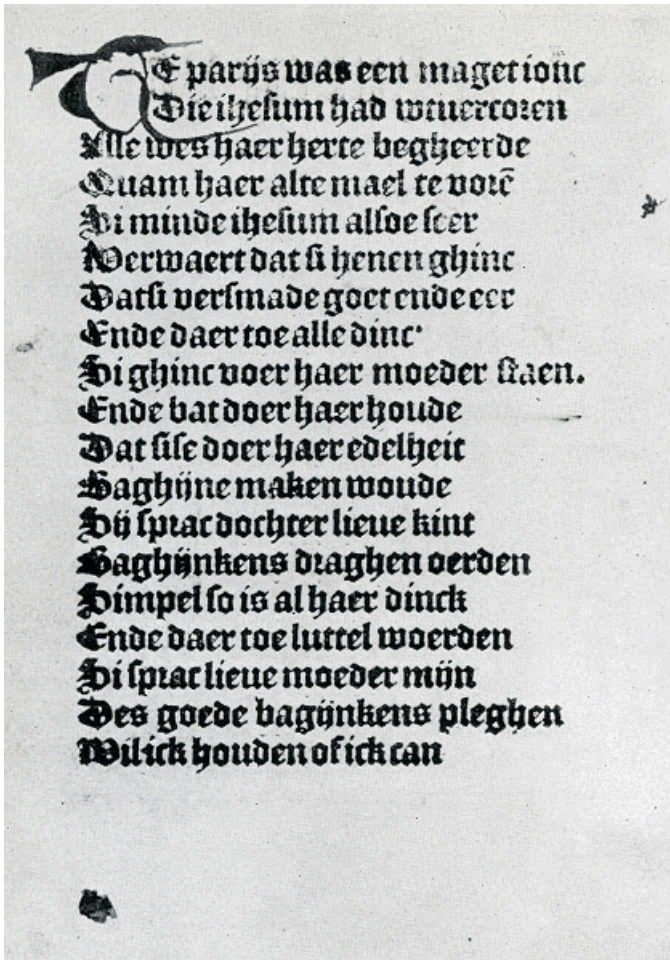 TE parijs was een maget ionc
Die ihesum had wtuercoren
Alle wes haer herte begheerde
Quam haer alte mael te vorē
Si minde ihesum alsoe seer
Werwaert dat si henen ghinc
Dat si versmade goet ende eer
Ende daer toe alle dinc
Si ghinc voer haer moeder staen.
Ende bat doer haer houde
Dat sise doer haer edelheit
Baghijne maken woude
Sij sprac dochter lieue kint
Baghijnkens draghen oerden
Simpel so is al haer dinck
Ende daer toe luttel woerden
Si sprac lieue moeder mijn
Des goede bagijnkens pleghen
Wil ick houden of ick can